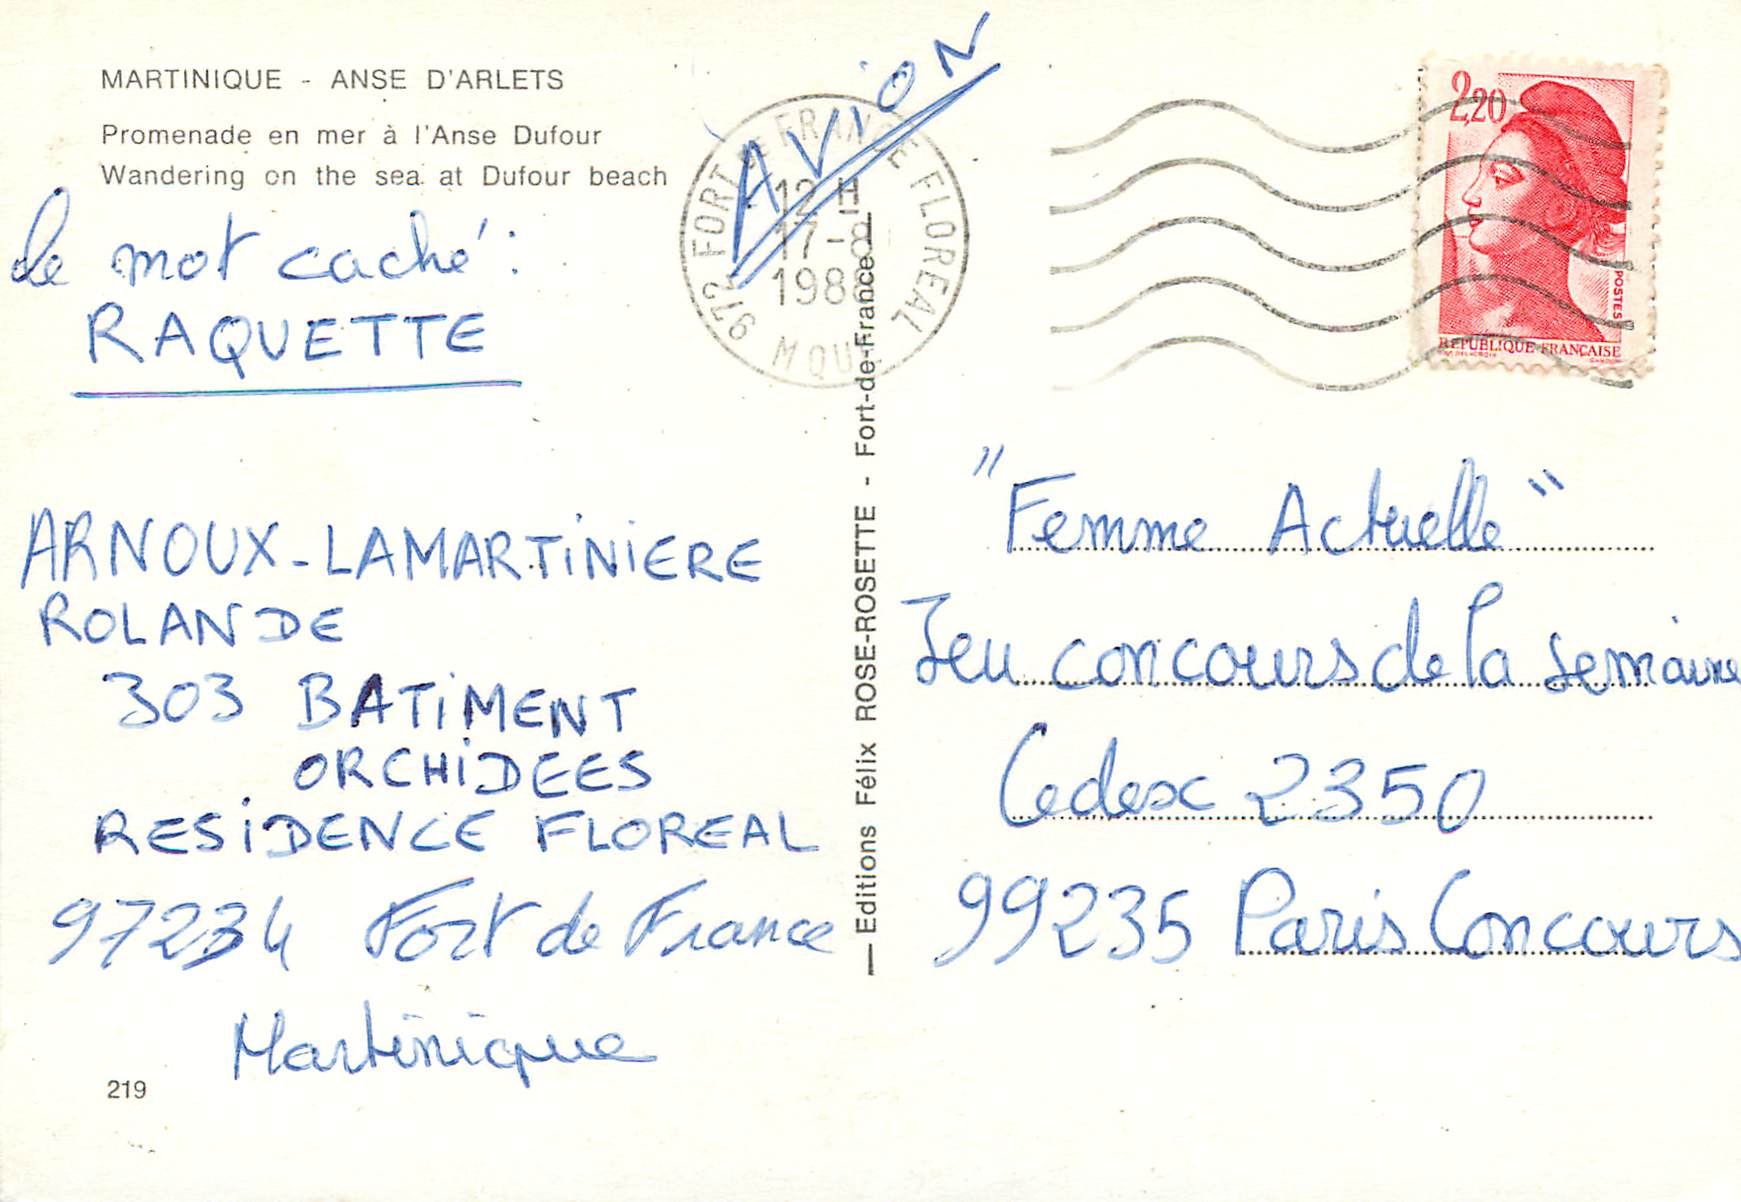 MARTINIQUE - ANSE D'ARLETS
Promenade en mer à l'Anse Dufour
Wandering on the sea at Dufour beach
le mot caché :
RAQUETTE
ARNOUX-LAMARTINIERE
ROLANDE
303 BATIMENT
ORCHIDEES
RESIDENCE FLOREAL
97234 Fort de France
Martinique
219
Editions Félix ROSE-ROSETTE - Fort-de-France
AVION
972 FORT DE FRANCE FLOREAL
12 H
17-8
198
MQUE
2,20
POSTES
REPUBLIQUE FRANÇAISE
"Femme Actuelle"
Jeu concours de la semaine
Cedex 2350
99235 Paris Concours